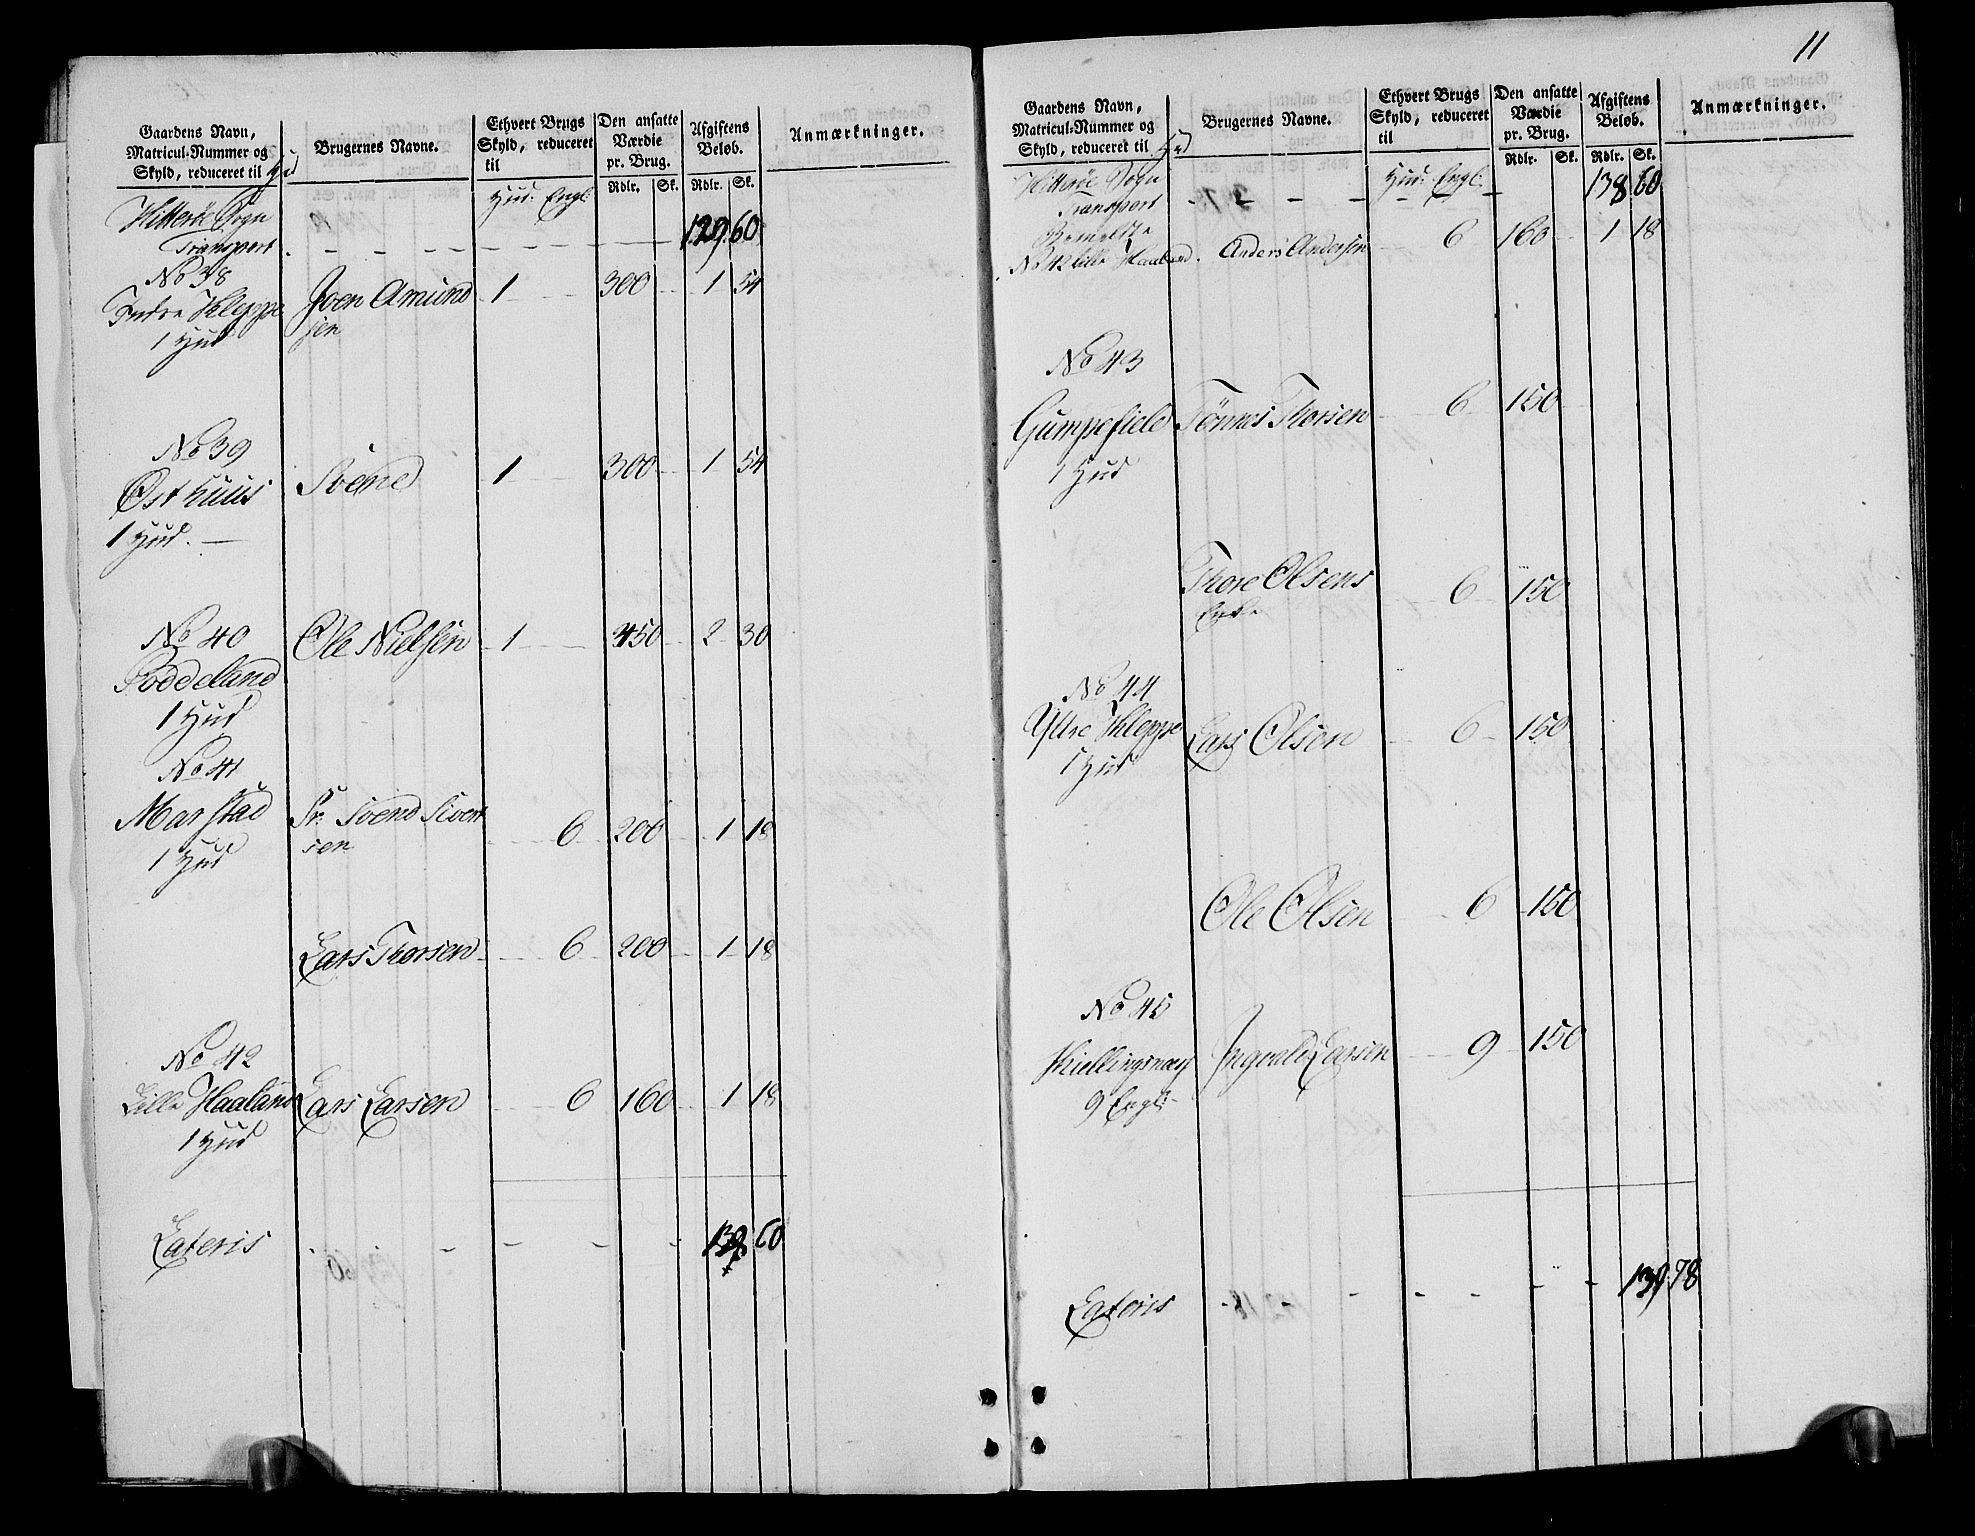 Gaardens Navn,
Matricul-Nummer og
Skyld, reduceret til Hud
Brugernes Navne.
Ethvert Brugs
Skyld, reduceret
til
Hud. Engl:
Den ansatte
Værdie
pr. Brug.
Rdlr. Sk.
Afgiftens
Beløb.
Rdlr. Sk.
Anmærkninger.
Hitterøe Sogn
Transport - - - - - - - 129. 60
No 38
Indre Kleppe Joen Amund 1 300 1 54
1 Hud sen
No 39
Østhuus Svend 1 300 1 54
1 Hud. —
No 40 Ole Nielsen 1 450 2 30
Poddeland
1 Hud
No 41
Marstad Sr. Svend Sivert 6 200 1 18
1 Hud sen
Lars Thorsen 6 200 1 18
No 42
Lille Haaland Lars Larsen 6 160 1 18
1 Hud
Lateris - - - - - 60
11
Gaardens Navn,
Matricul-Nummer og
Skyld, reduceret til Hud
Brugernes Navne.
Ethvert Brugs
Skyld, reduceret
til
Hud. Engl:
Den ansatte
Værdie
pr. Brug.
Rdlr. Sk.
Afgiftens
Beløb.
Rdlr. Sk.
Anmærkninger.
Hitterøe Sogn
Transport - - - - - - 138 60
Bemeldte
No 42 Lille Haaland. Anders Andersen 6 160 1 18
No 43
Gumpefield Tønnes Thorsen 6 150
1 Hud
Thore Olsens 6 150
Enke
No 44
Yttre Kleppe Lars Olsen 6 150
1 Hud
Ole Olsen 6 150
No 45
Kiellingsnæs Ingvald Larsen 9 150
9 Engl:
Lateris - - - - - - - 139 78